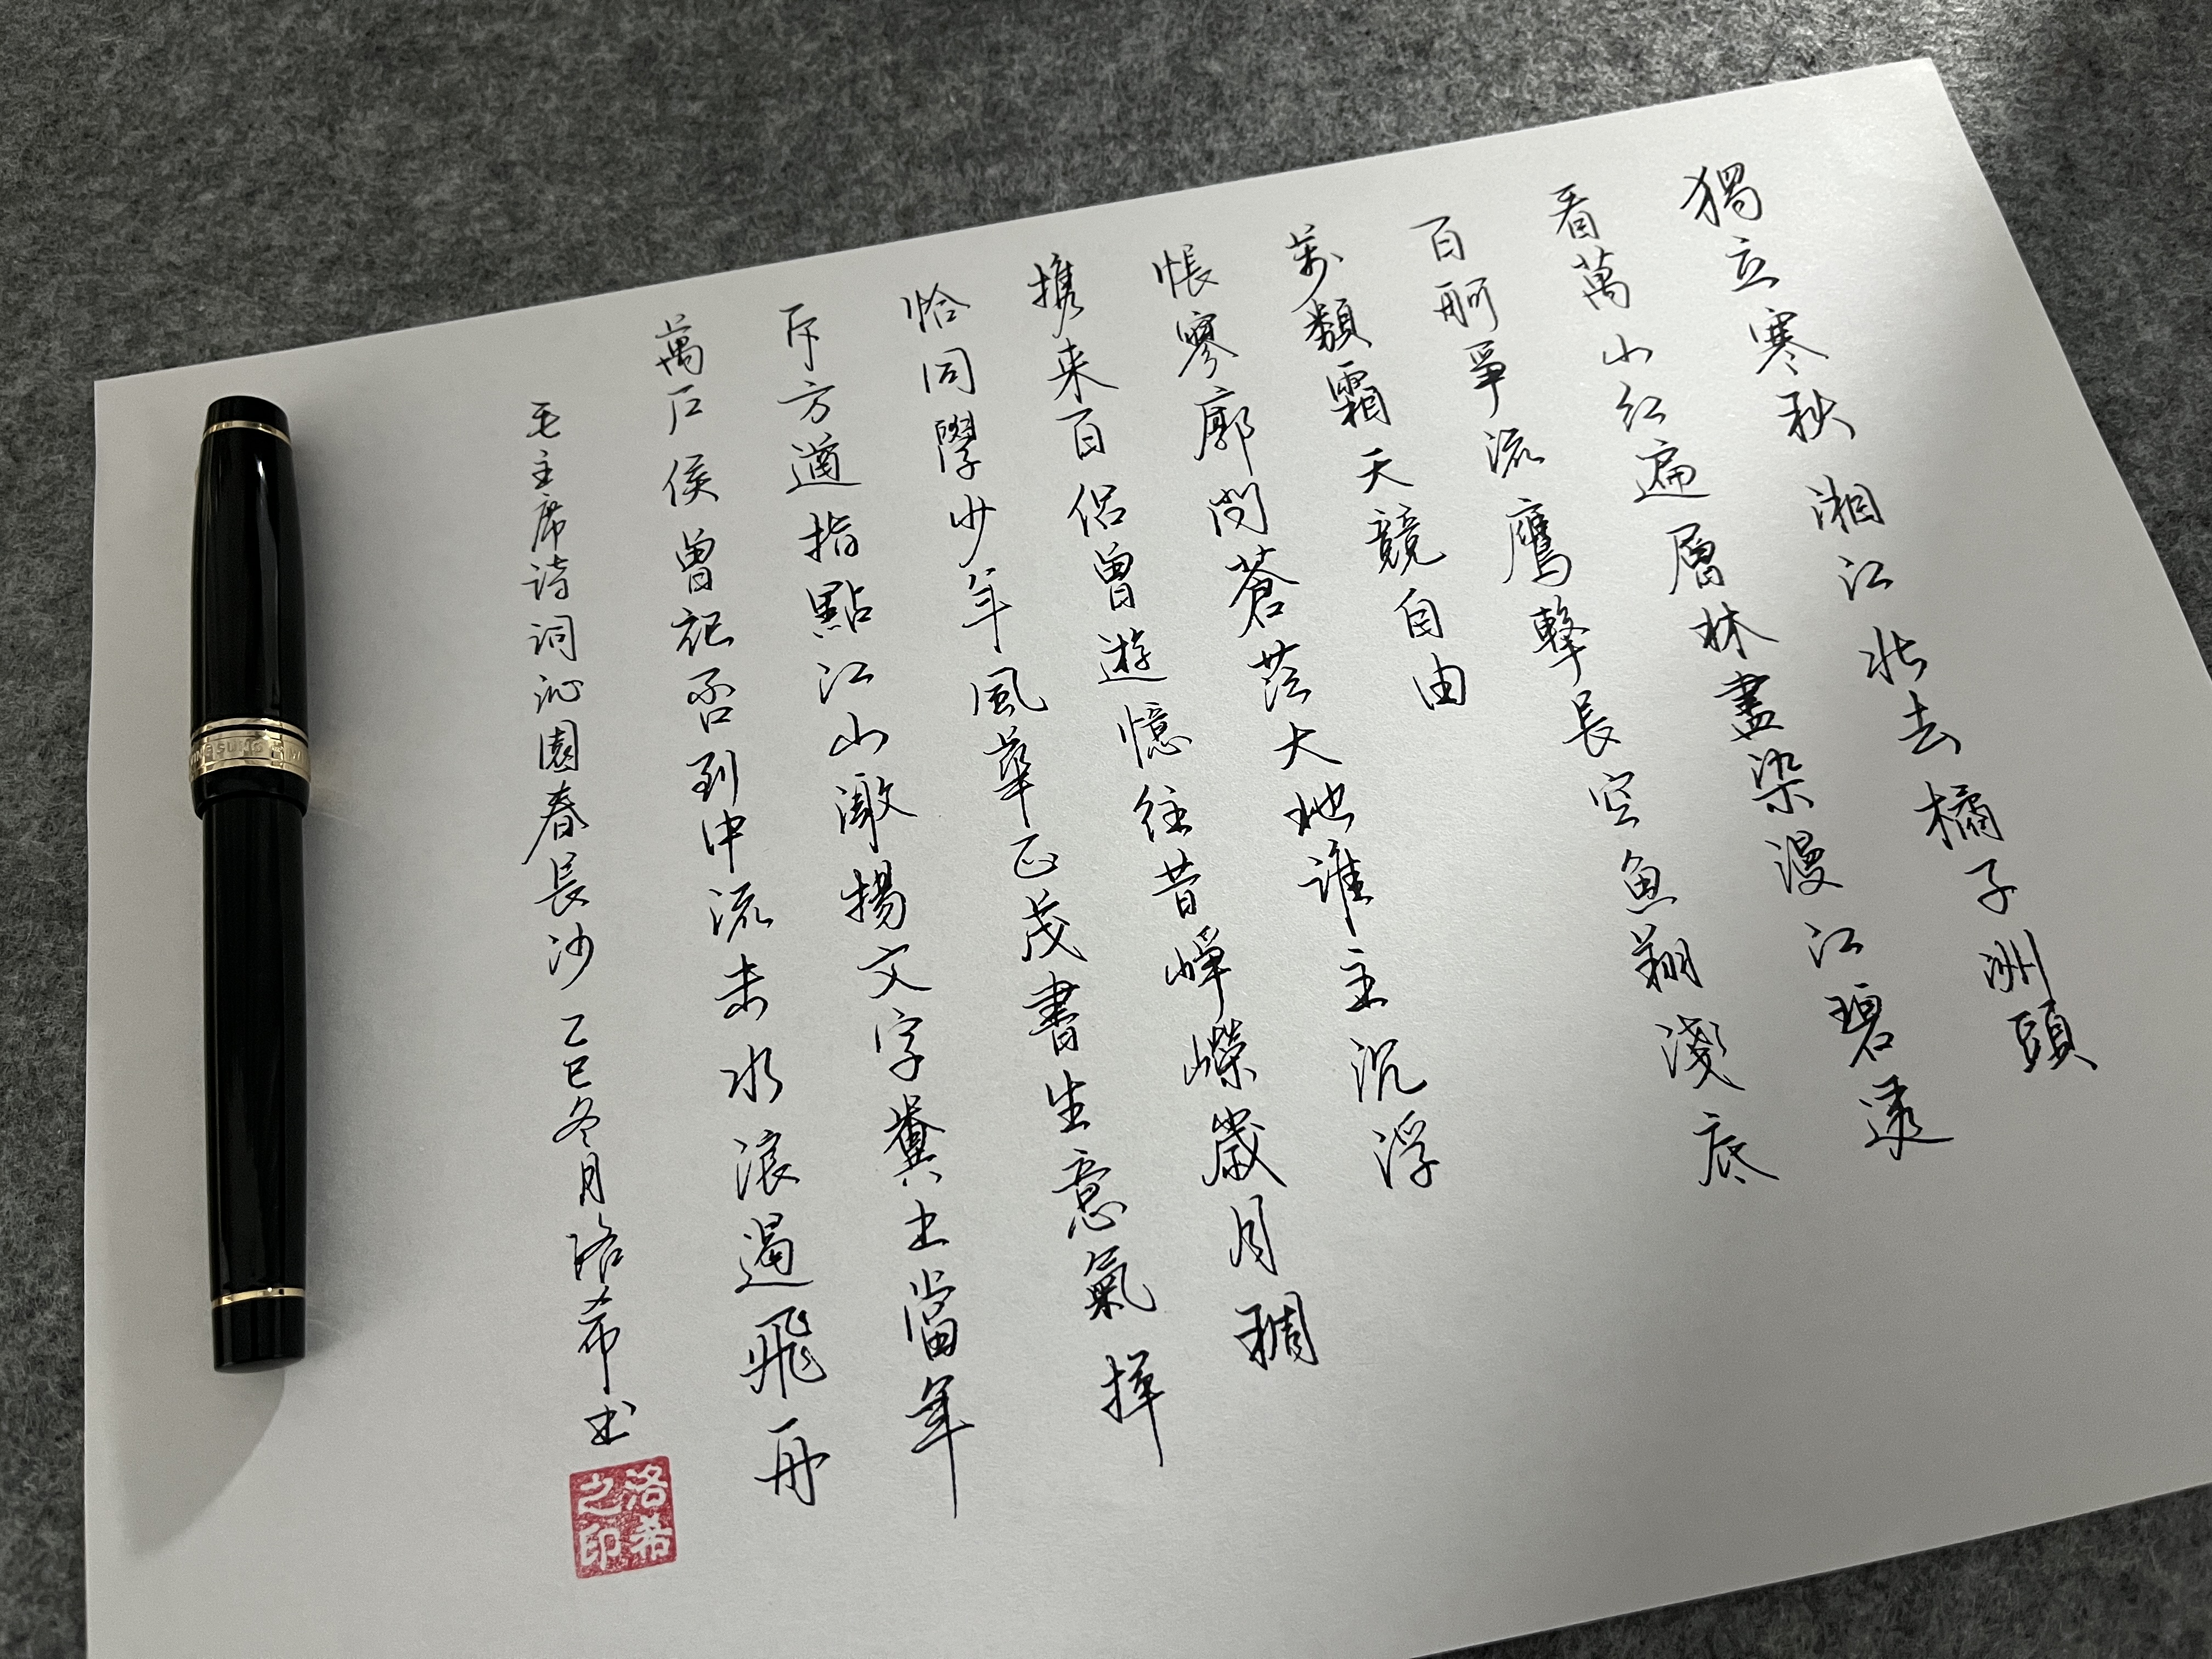 獨立寒秋湘江北去橘子洲頭
看萬山紅遍層林盡染漫江碧透
百舸爭流鷹擊長空魚翔淺底
萬類霜天競自由
悵寥廓問蒼茫大地誰主沉浮
攜来百侶曾遊憶往昔崢嶸歲月稠
恰同學少年風華正茂書生意氣揮
斥方遒指點江山激揚文字糞土當年
萬戶侯曾記否到中流击水浪遏飛舟
毛主席诗词沁園春長沙 乙巳冬月洛希书
洛希之印
SUNG